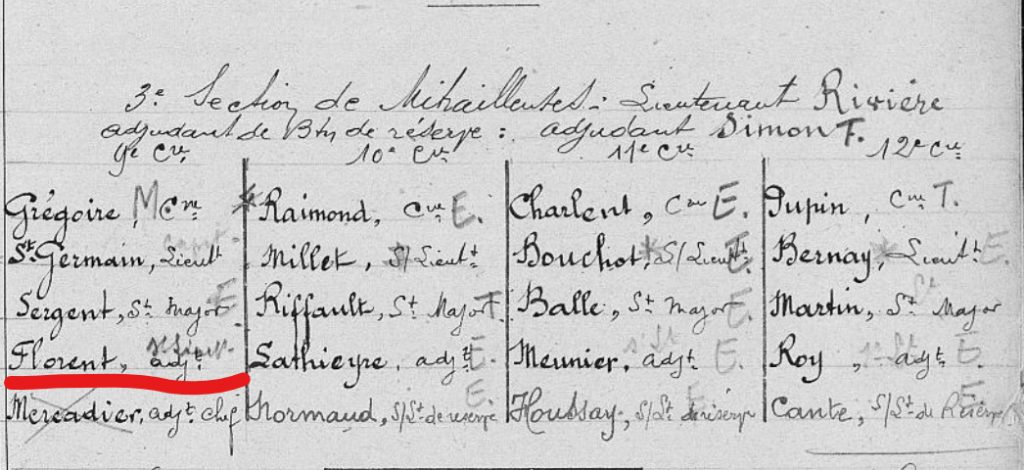 3e Section de Mitrailleuses: Lieutenant Rivière
adjudant de Btn de réserve: adjudant Simon T.
9e Cie 10e Cie 11e Cie 12e Cie
Grégoire, M Cne * Raimond, Cne E. Charlent, Cne E. Pupin, Cne T.
St Germain, Lieutt Millet, S/Lieutt Bouchot,* S/Lieutt E. Bernay,* Lieutt E.
Sergent, St Major E Riffault, St Major T. Balle, St Major E. Martin, St Major
Florent, adjt Lathieyre, adjt E. Meunier, adjt E. Roy, adjt E.
Mercadier, adjt chef Normand, S/Lt de réserve E. Houssay, S/Lt de réserve E. Cante, S/Lt de Réserve